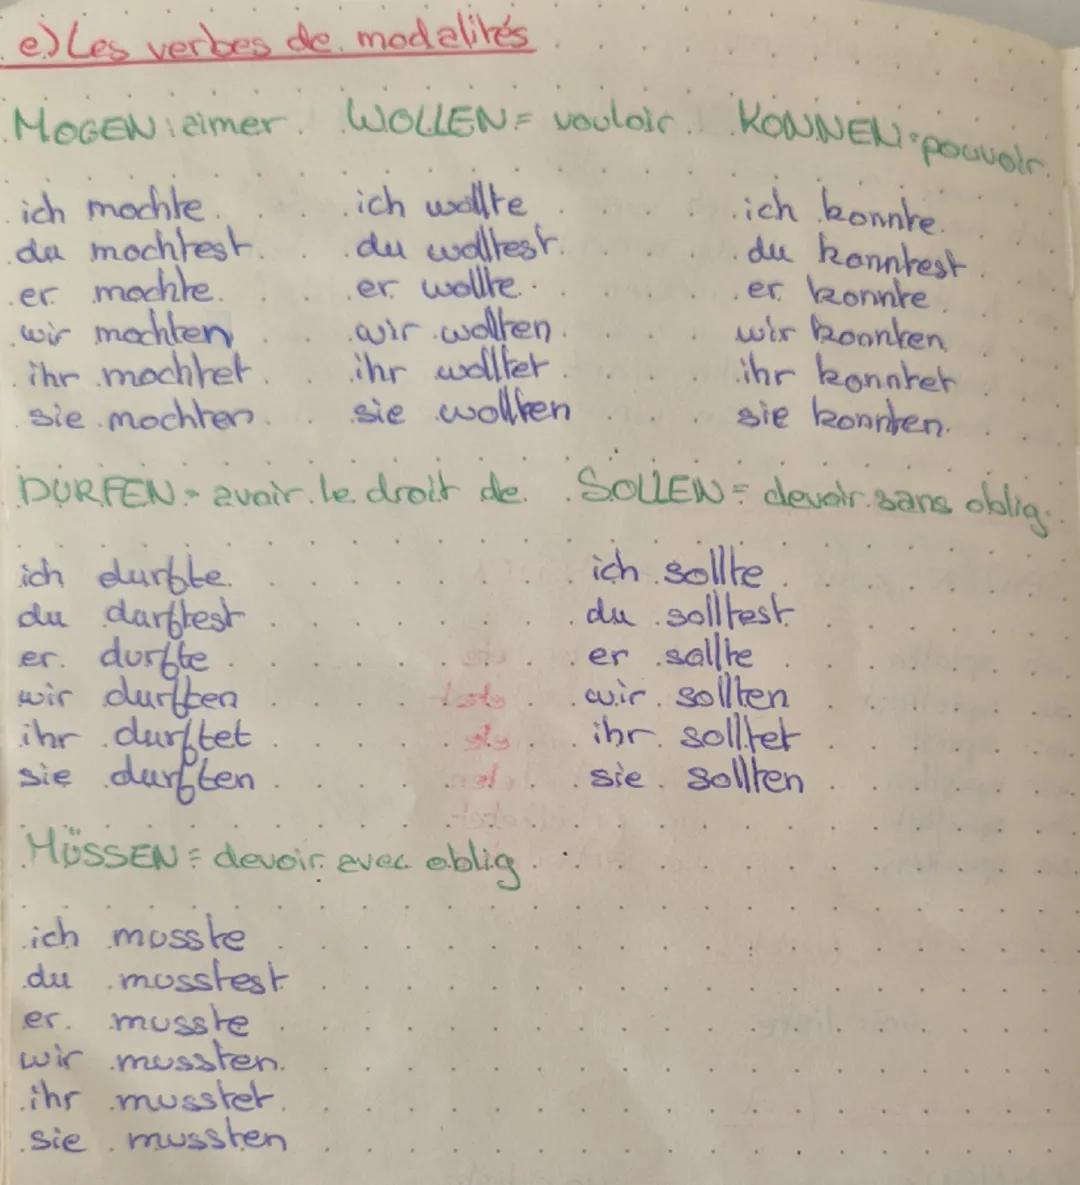 e) Les verbes de modalités
MOGEN : aimer. WOLLEN = vouloir. KONNEN = pouvoir
ich mochte. ich wollte ich konnte.
du mochtest. du wolltest. du konntest
er mochte. er wollte. er konnte
wir mochten wir wollten. wir konnten
ihr mochtet. ihr wolltet ihr konntet
sie mochten. sie wollten sie konnten.
DURFEN = avoir le droit de. SOLLEN = devoir sans oblig.
ich durfte. ich sollte
du darftest du solltest
er. durfte er sollte
wir durften wir sollten
ihr durftet ihr solltet
sie durften sie sollten
MÜSSEN = devoir avec oblig
ich musste
du musstest
er. musste
wir mussten.
ihr musstet.
sie mussten